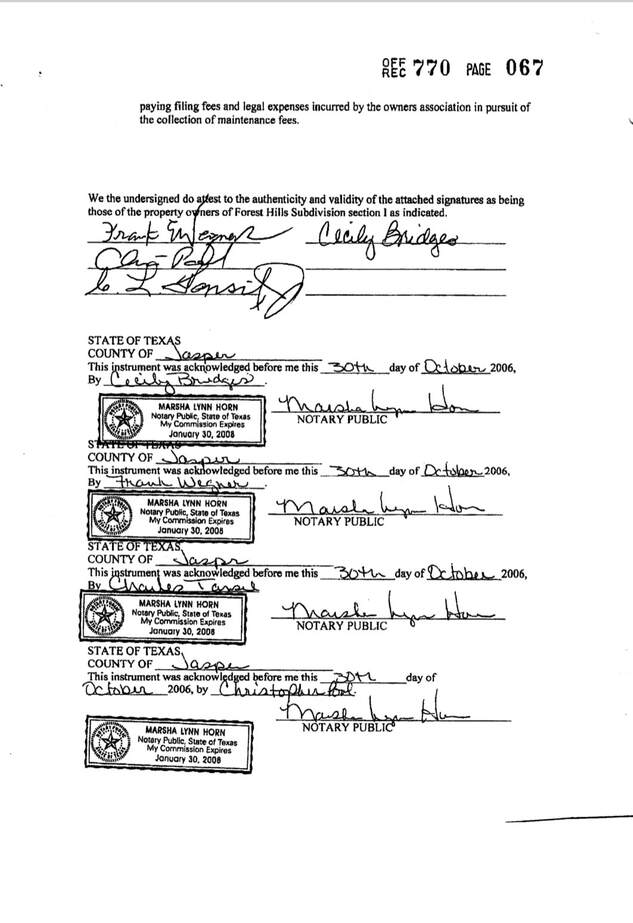 OFF REC 770 PAGE 067
paying filing fees and legal expenses incurred by the owners association in pursuit of
the collection of maintenance fees.
We the undersigned do attest to the authenticity and validity of the attached signatures as being
those of the property owners of Forest Hills Subdivision section I as indicated.
Frank Wegner Cecily Bridges
STATE OF TEXAS
COUNTY OF Jasper
This instrument was acknowledged before me this 30th day of October 2006,
By Cecily Bridges.
MARSHA LYNN HORN
Notary Public, State of Texas
My Commission Expires
January 30, 2008
Marsha Lynn Horn
NOTARY PUBLIC
STATE OF TEXAS
COUNTY OF Jasper
This instrument was acknowledged before me this 30th day of October 2006,
By Frank Wegner.
MARSHA LYNN HORN
Notary Public, State of Texas
My Commission Expires
January 30, 2008
Marsha Lynn Horn
NOTARY PUBLIC
STATE OF TEXAS
COUNTY OF Jasper
This instrument was acknowledged before me this 30th day of October 2006,
By Charles
MARSHA LYNN HORN
Notary Public, State of Texas
My Commission Expires
January 30, 2008
Marsha Lynn Horn
NOTARY PUBLIC
STATE OF TEXAS,
COUNTY OF Jasper
This instrument was acknowledged before me this 30th day of
October 2006, by Christopher
Marsha Lynn Horn
NOTARY PUBLIC
MARSHA LYNN HORN
Notary Public, State of Texas
My Commission Expires
January 30, 2008